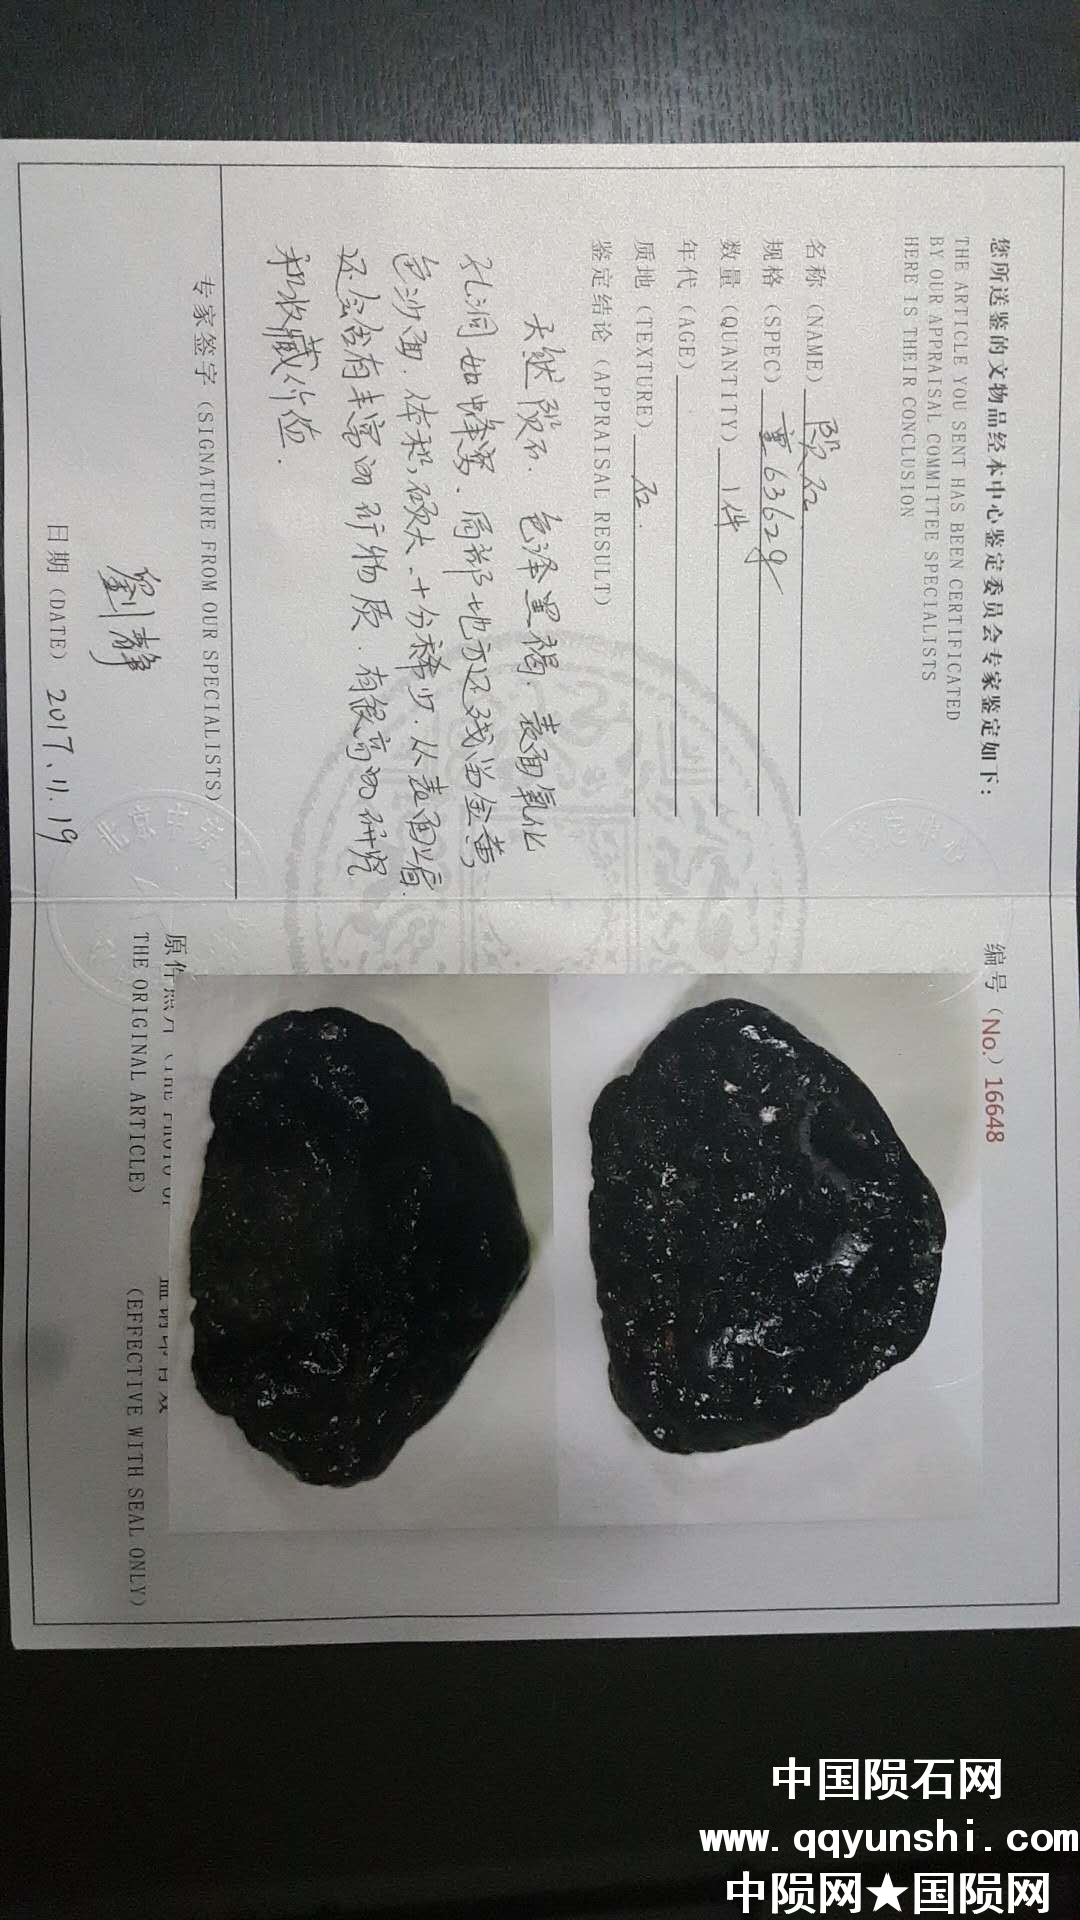 您所送鉴的文物品经本中心鉴定委员会专家鉴定如下：
THE ARTICLE YOU SENT HAS BEEN CERTIFICATED
BY OUR APPRAISAL COMMITTEE SPECIALISTS
HERE IS THEIR CONCLUSION
名称（NAME） 陨石
规格（SPEC） 重6362g
数量（QUANTITY） 1件
年代（AGE）
质地（TEXTURE） 石.
鉴定结论（APPRAISAL RESULT）
天然陨石. 色泽黑褐. 表面氧化
孔洞如蜂窝. 局部地方还残留金黄
色沙面. 体积硕大、十分稀少. 从表面上看.
还会含有丰富的矿物质. 有很高的研究
和收藏价值.
专家签字（SIGNATURE FROM OUR SPECIALISTS）
劉静
日期（DATE） 2017、11. 19
编号（No.）16648
原件照片（THE PHOTO OF
THE ORIGINAL ARTICLE）
（EFFECTIVE WITH SEAL ONLY）
中国陨石网
www.qqyunshi.com
中陨网★国陨网